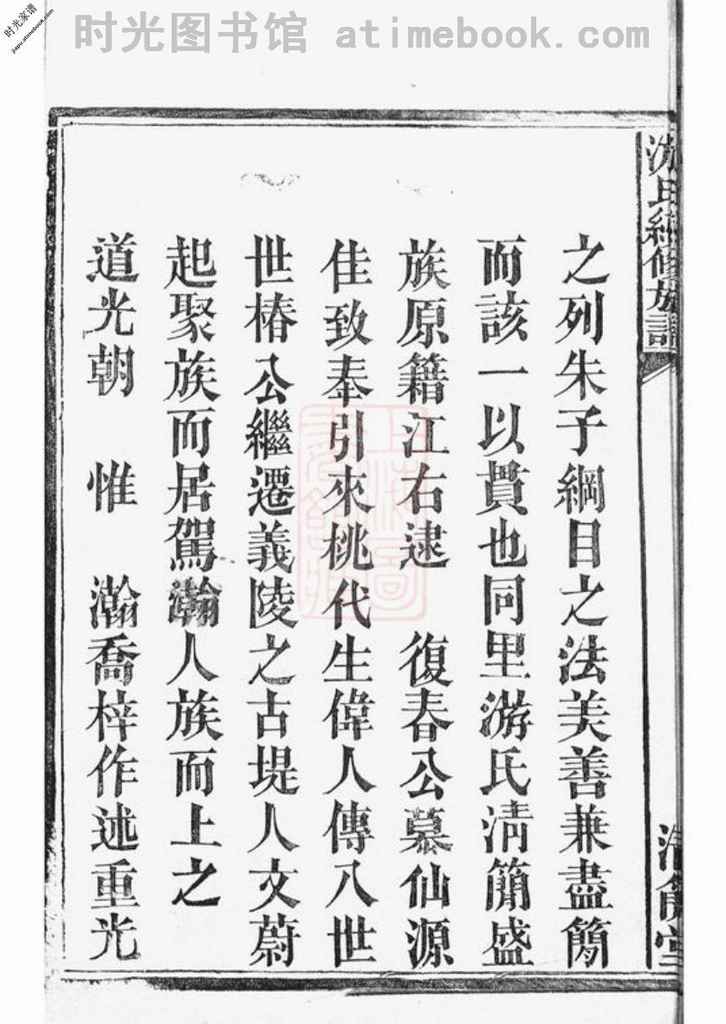 时光图书馆 atimebook.com
时光家谱
之列朱子綱目之法美善兼盡簡
而該一以貫也同里游氏清簡盛
族原籍江右逮 復春公慕仙源
佳致奉引來桃代生偉人傳八世
世椿公繼遷義陵之古堤人文蔚
起聚族而居駕瀚人族而上之
道光朝 惟 瀚喬梓作述重光